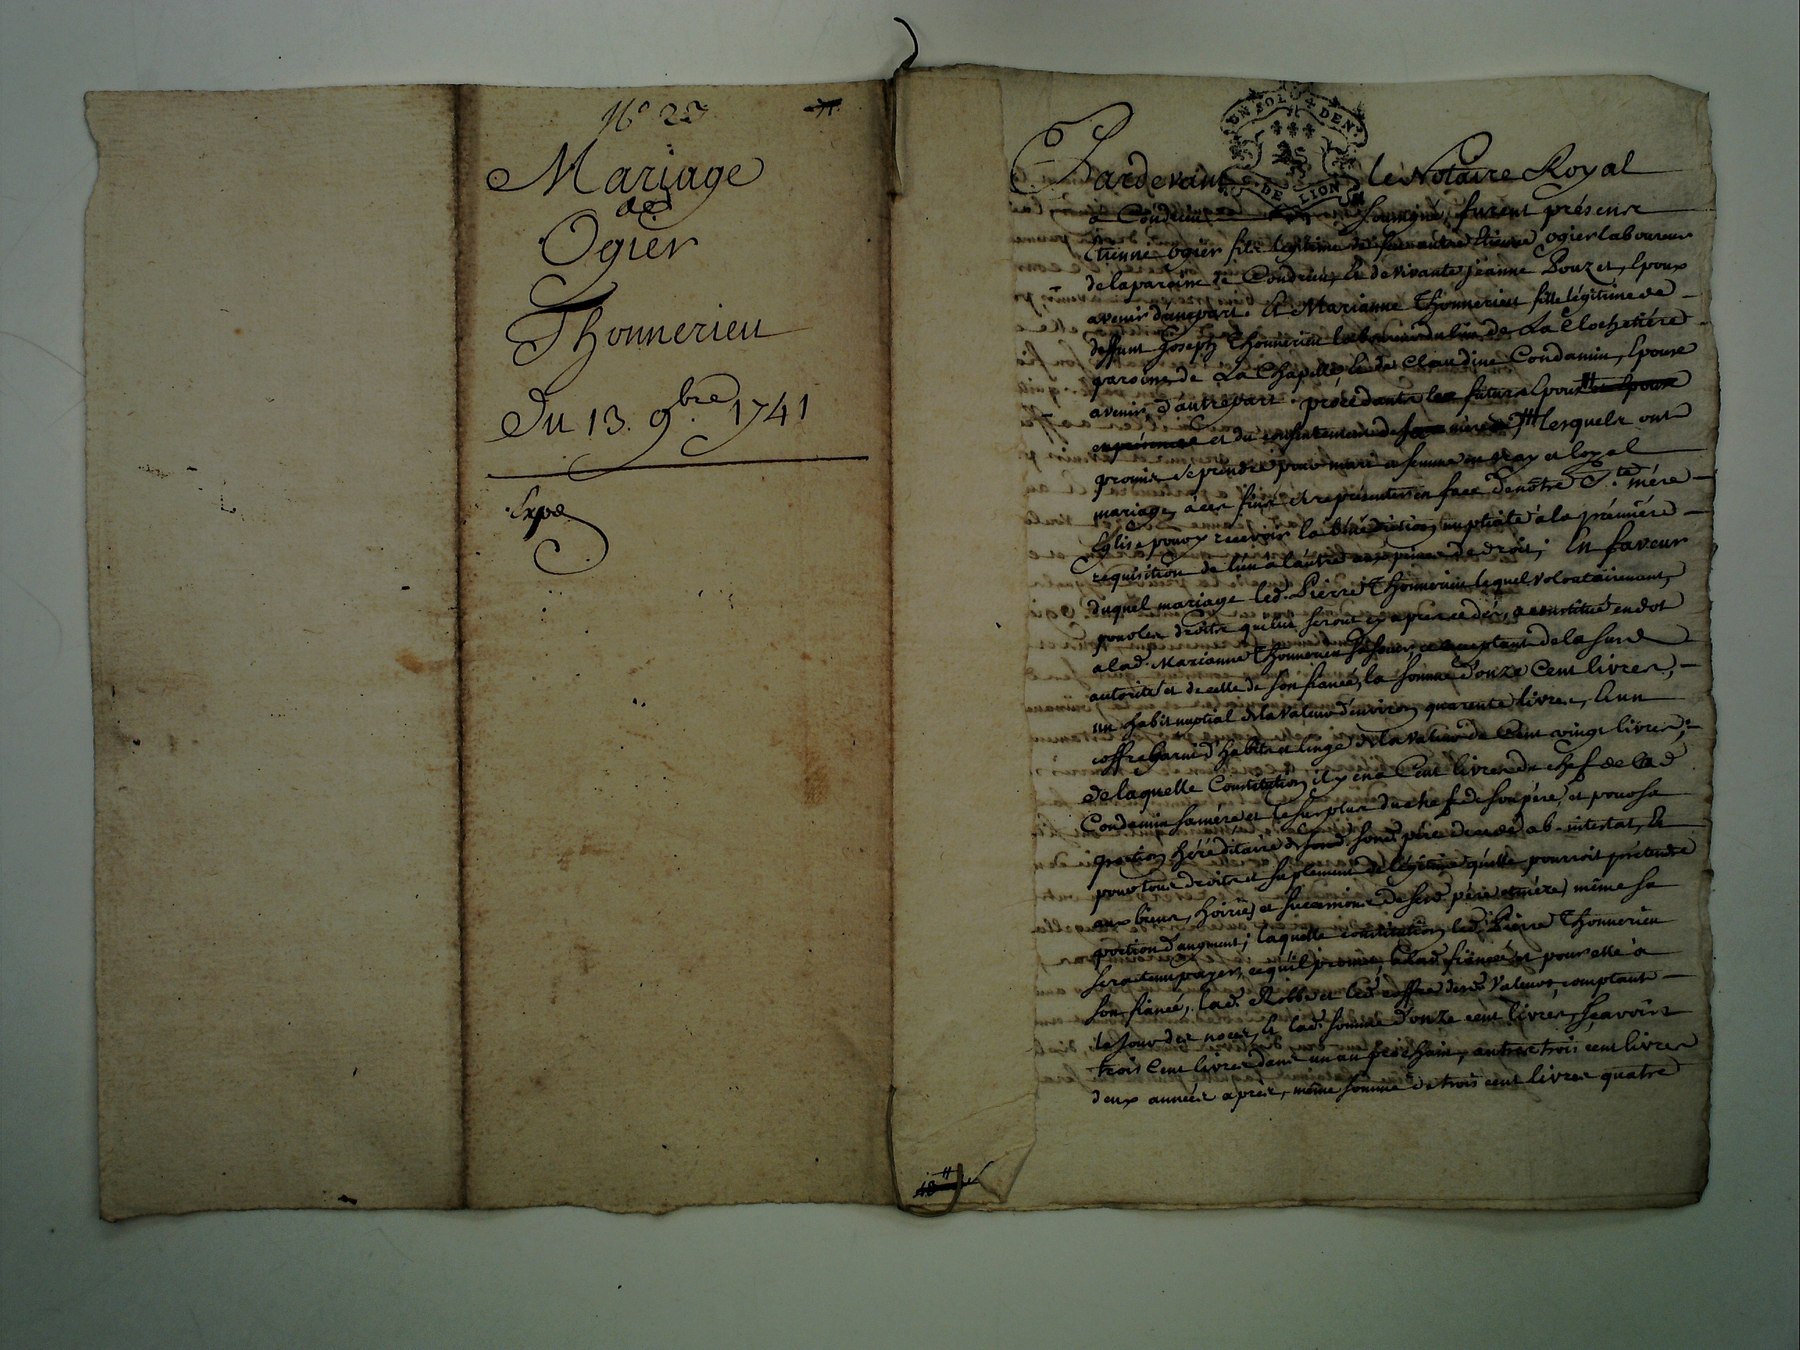 N° 23
Mariage
de
Ogier
Thonnerieu
Du 13. 9bre. 1741
Expé
UN SOL DEN.
G. DE LION
Pardevant le Notaire Royal
à Condrieu soussigné, furent présens
Etienne ogier fils légitime de feu autre Etienne ogier laboureur
de la paroisse de Condrieu, et de vivante jeanne Pouzet, Epoux
avenir d'une part. Et Marianne Thonnerieu fille légitime de
deffunt Joseph Thonnerieu laboureur du lieu de La Clochetiére
paroisse de La Chapelle, et de Claudine Condamin, Epouse
avenir d'autre part. procédants les futurs Epoux
et du consentement de lesquels ont
promis se prendre pour mari et femme en vray et loyal
mariage, à ces fins se représenter en face de nôtre Ste. mére
Eglise pour y recevoir la bénédiction nuptiale à la prémiére
réquisition de l'un à l'autre aux peines de droit; En faveur
duquel mariage led. Pierre Thonnerieu lequel volontairement,
pour les droits qui lui seront cy aprés cédés, a constitué en dot
a lad. Marianne Thonnerieu sa soeur ce acceptant de la susd.
autorité et de celle de son fiancé, la somme d'onze Cent livres,
un habit nuptial de la valeur d'environ quarente livres, Et un
coffre garni d'habits et linge de la valeur de Cent vingt livres;
de laquelle Constitution il y en a Cent livres du chef de lad.
Condamin sa mére et le surplus du chef de son pére, et pour sa
portion héréditaire de fond. pére décédé ab-intestat, Et
pour tous droits et suplément de légitime qu'elle pourroit prétendre
aux biens, hoiries et successions de sesd. pére et mére, même sa
portion d'augment; laquelle constitution led. Pierre Thonnerieu
sera tenu payer, ce qu'il promet, a lad. fiancée et pour elle à
son fiancé, lad. Robbe et led. coffre desd. valeurs comptant
le jour des noces, Et lad. somme d'onze cent livres, sçavoir
trois Cent livres dans un an prochain, autres trois cent livres
deux années aprés, même somme de trois cent livres quatre